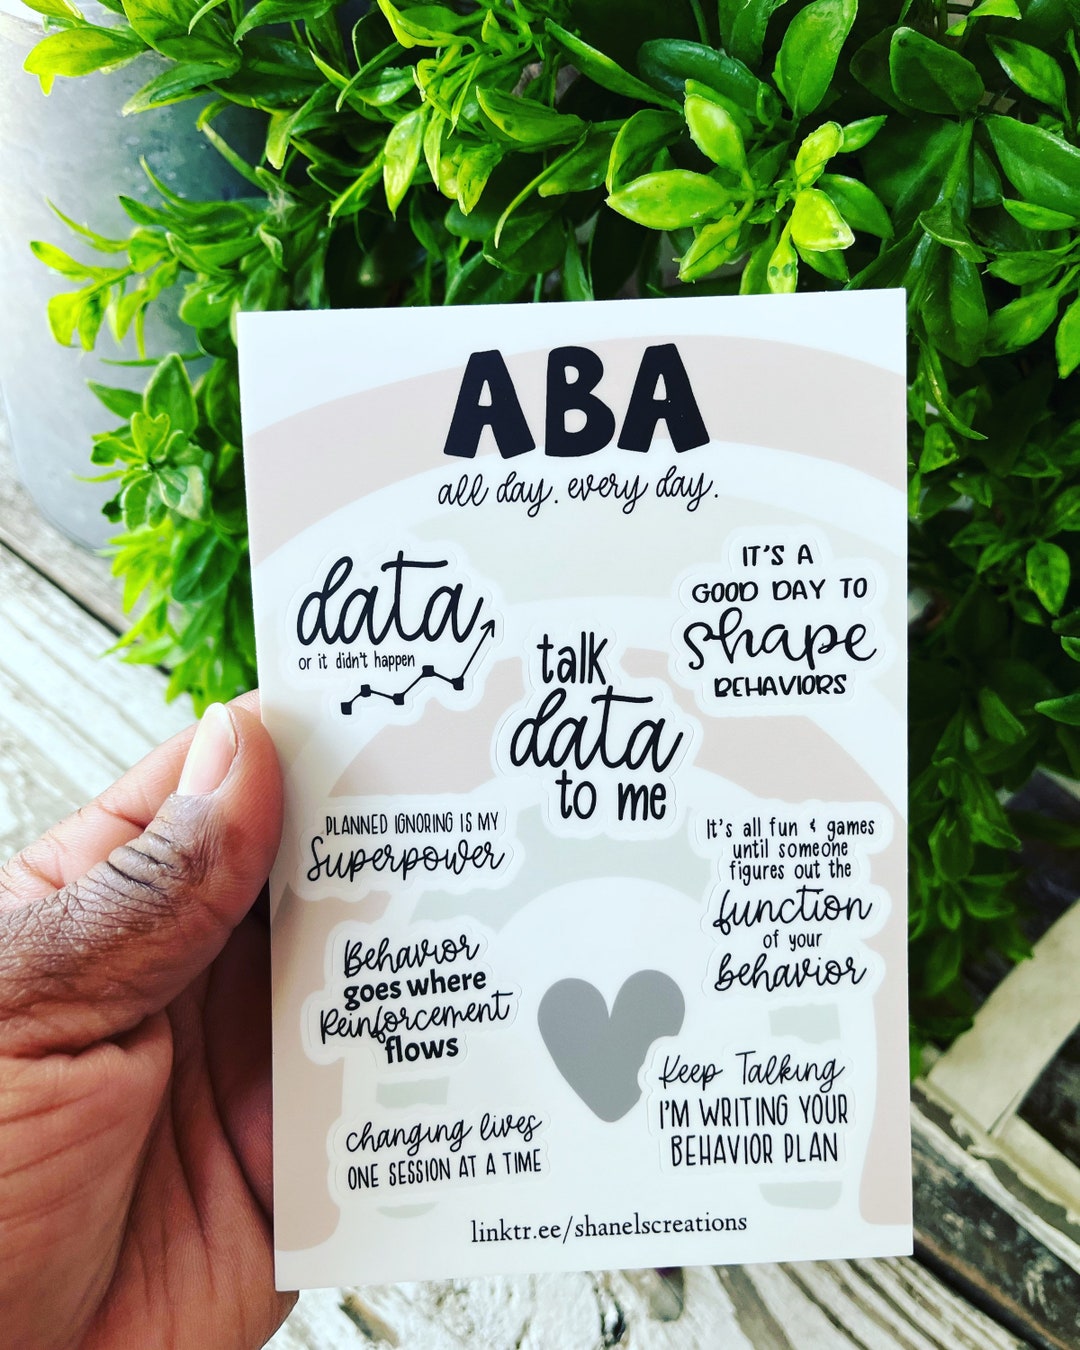 ABA
all day. every day.
data
or it didn't happen
IT'S A
GOOD DAY TO
shape
BEHAVIORS
talk
data
to me
PLANNED IGNORING IS MY
Superpower
It's all fun & games
until someone
figures out the
function
of your
behavior
Behavior
goes where
Reinforcement
flows
Keep Talking
I'M WRITING YOUR
BEHAVIOR PLAN
changing lives
ONE SESSION AT A TIME
linktr.ee/shanelscreations